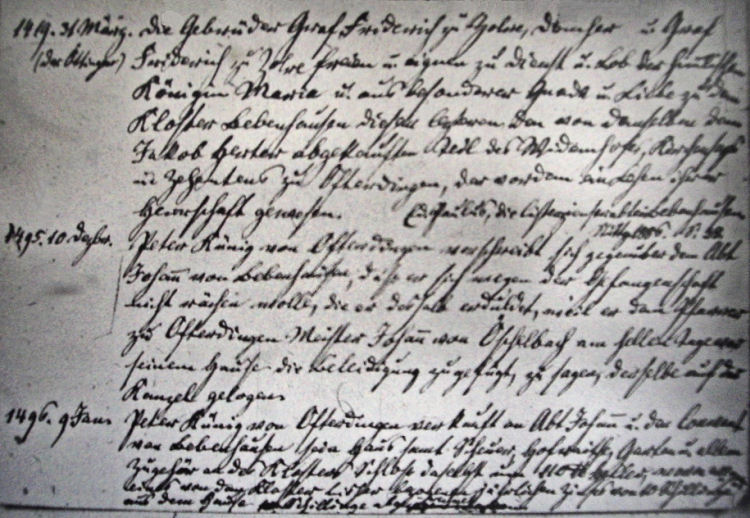 1419. 31 März. Die Gebrüder Graf Friderich zu Zolre, Domher u Graf
(der Öttinger) Friderich zu Zolre freien u eignen zu Dienst u. Lob der himmlischen
Königin Maria u. aus besonderer Gnade u. Liebe zu dem
Kloster Bebenhausen diesem letzteren den von demselben dem
Jakob Herter abgekauften Teil des Widemhofes, Kirchensatzes
u Zehentens zu Ofterdingen, der vordem ein Lehen ihrer
Herrschaft gewesen. Ed. Paulus, die Cisterzienserabtei Bebenhausen,
Stuttg. 1886. S.
1495. 10 Dezbr. Peter Künig von Ofterdingen verschreibt sich gegenüber dem Abt
Johann von Bebenhausen, daß er sich wegen der Gefangenschaft
nicht rächen wolle, die er deshalb erduldet, weil er dem Pfarrer
zu Ofterdingen Meister Johann von Öschelbach am hellen Tage vor
seinem Hause die Beleidigung zugefügt, zu sagen, derselbe auf der
Kanzel gelogen
1496. 9 Jan. Peter Künig von Ofterdingen verkauft an Abt Johann u. den Convent
von Bebenhausen sein Haus samt Scheuer, Hofraithe, Garten u allem
Zugehör an des Klosters Schloß daselbst um 110 Heller,
von dem Kloster jährlichen Zins von 10 Schilling
aus dem Hause Schillinge